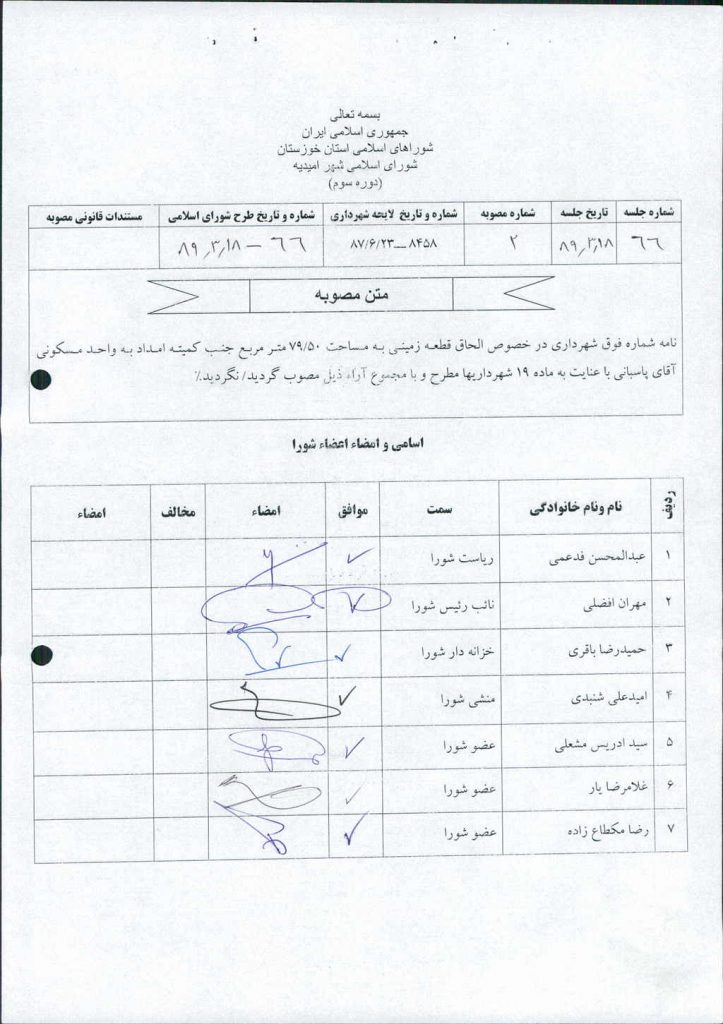 بسمه تعالی
جمهوری اسلامی ایران
شوراهای اسلامی استان خوزستان
شورای اسلامی شهر امیدیه
(دوره سوم)
شماره جلسه تاریخ جلسه شماره مصوبه شماره و تاریخ لایحه شهرداری شماره و تاریخ طرح شورای اسلامی مستندات قانونی مصوبه
۶۶ ۸۹,۳,۱۸ ۲ ۸۴۵۸ــ۸۷/۶/۲۳ ۶۶ – ۸۹,۳,۱۸
متن مصوبه
نامه شماره فوق شهرداری در خصوص الحاق قطعه زمینی به مساحت ۷۹/۵۰ متر مربع جنب کمیته امداد به واحد مسکونی
آقای پاسبانی با عنایت به ماده ۱۹ شهرداریها مطرح و با مجموع آراء ذیل مصوب گردید/ نگردید.٪
اسامی و امضاء اعضاء شورا
ردیف نام ونام خانوادگی سمت موافق امضاء مخالف امضاء
۱ عبدالمحسن فدعمی ریاست شورا ✓
۲ مهران افضلی نائب رئیس شورا ✓
۳ حمیدرضا باقری خزانه دار شورا ✓
۴ امیدعلی شنبدی منشی شورا ✓
۵ سید ادریس مشعلی عضو شورا ✓
۶ غلامرضا یار عضو شورا ✓
۷ رضا مکطاع زاده عضو شورا ✓